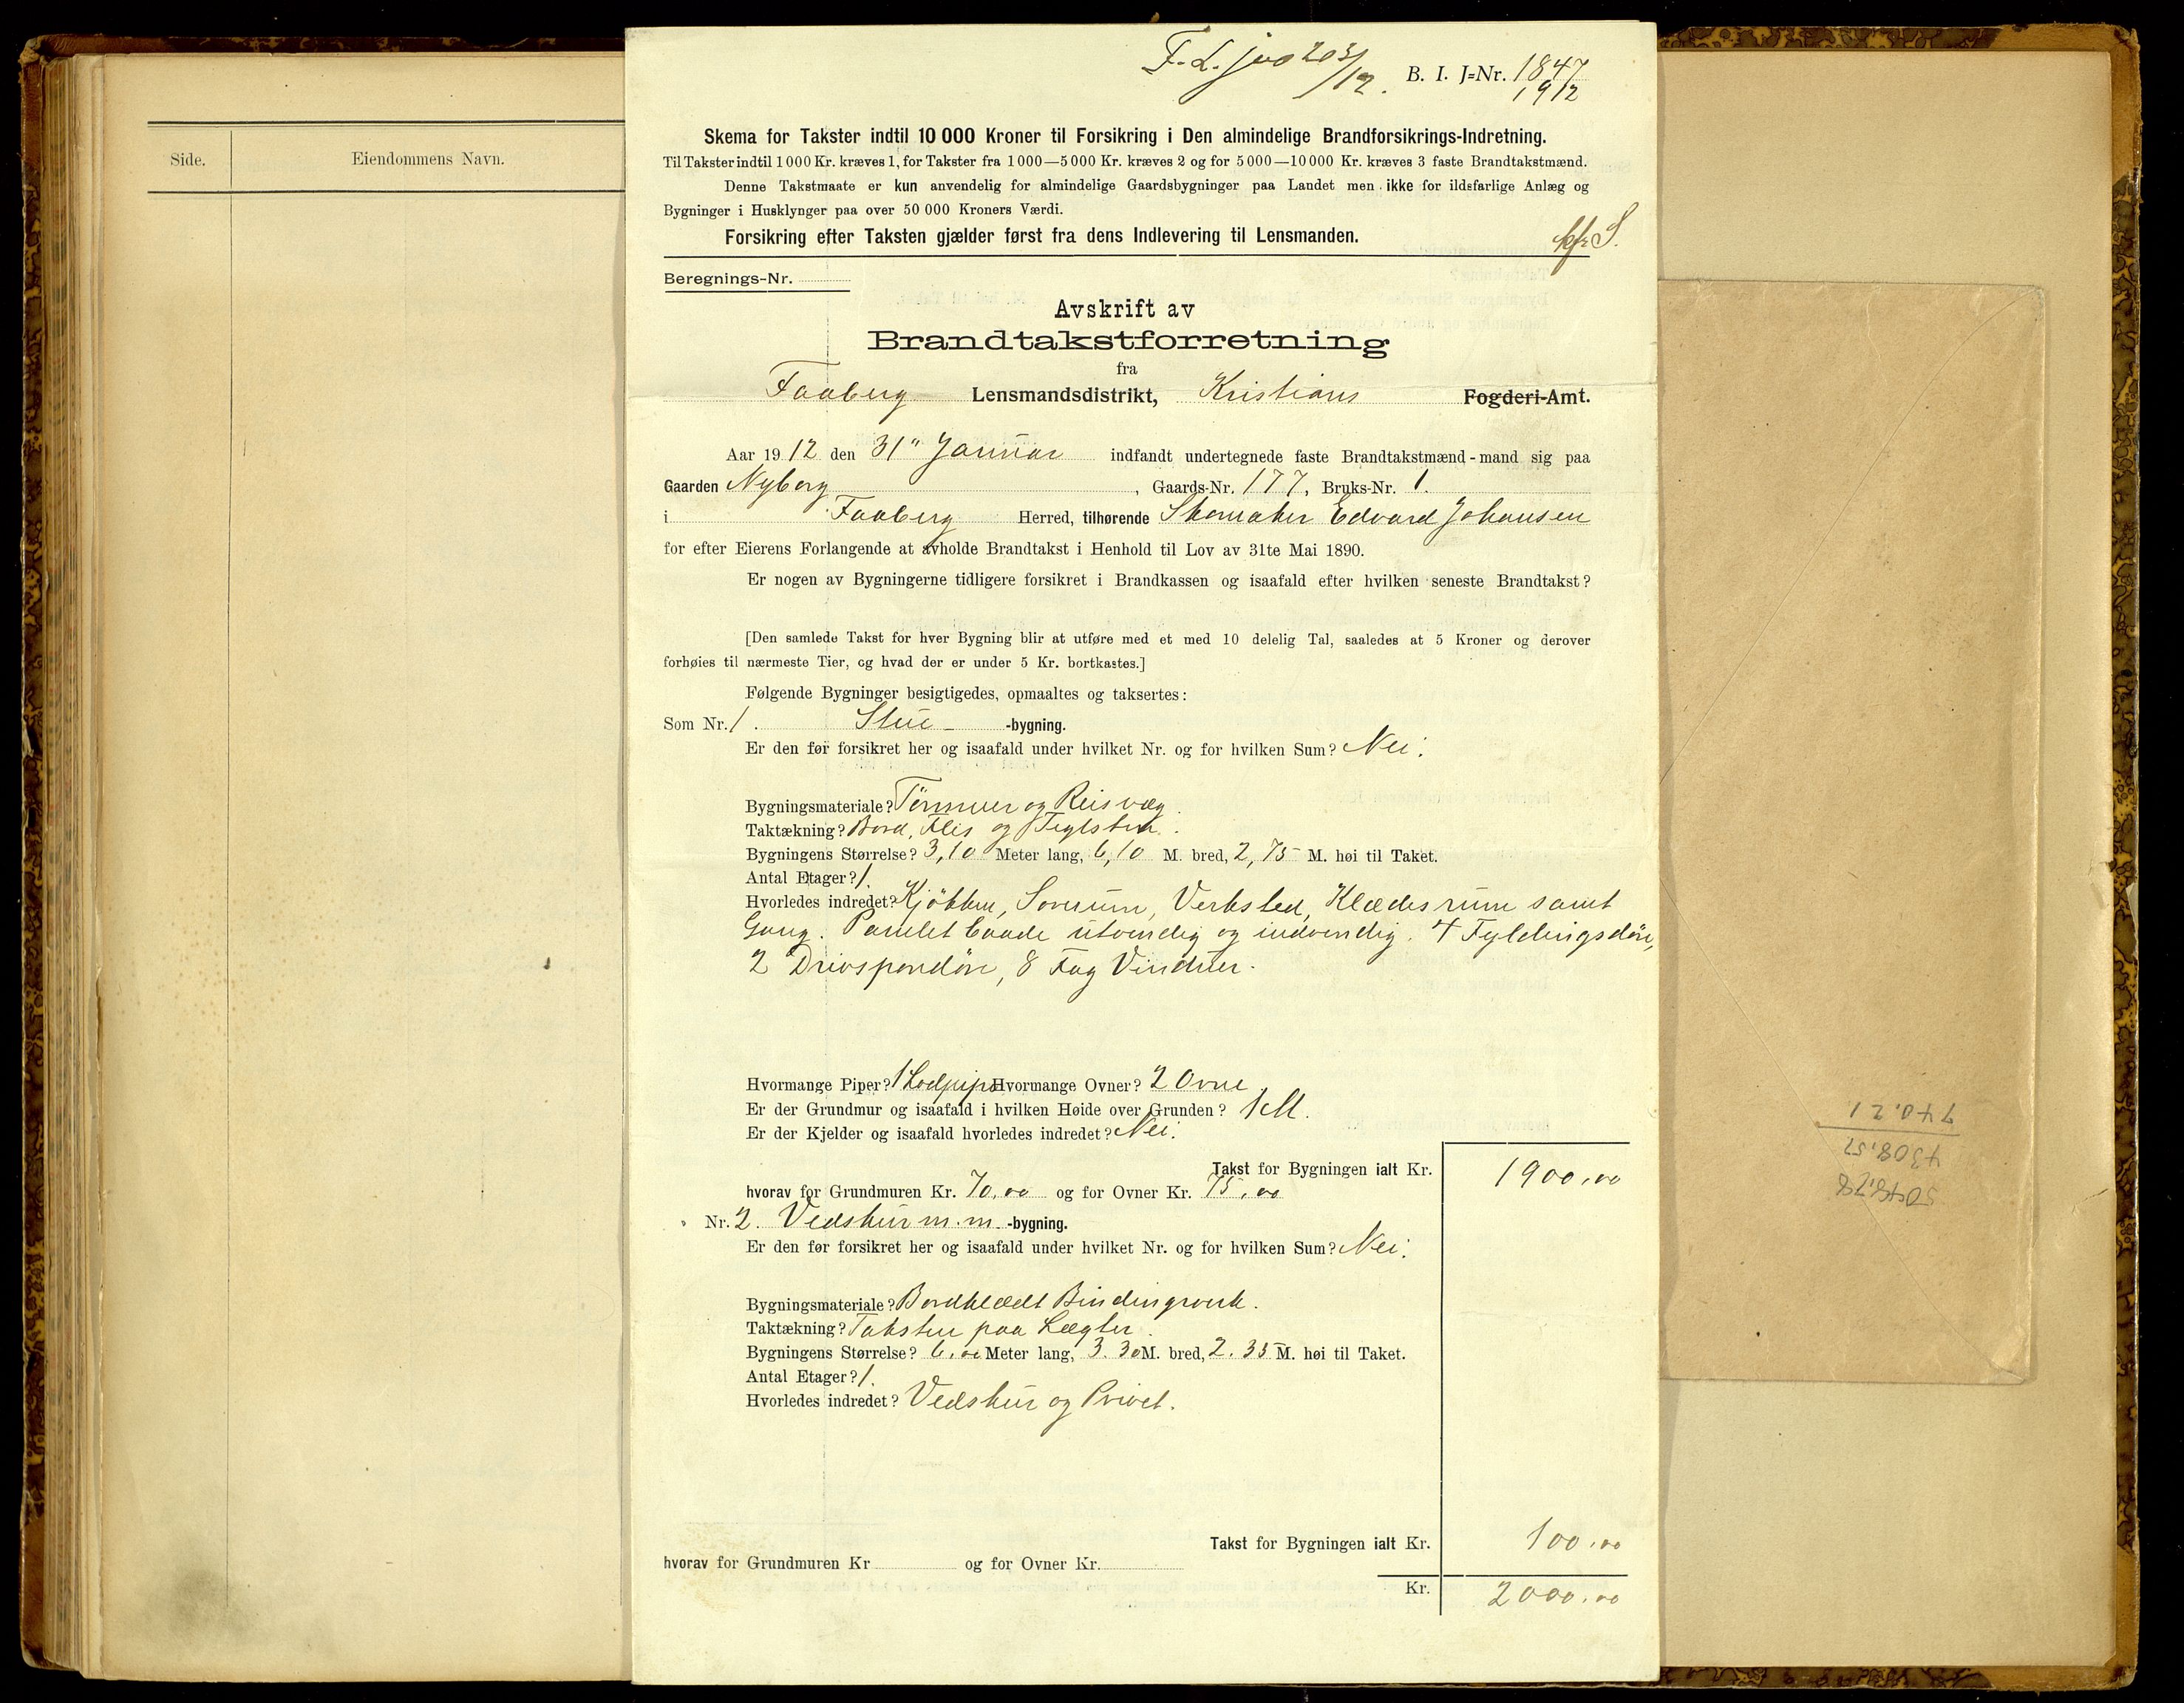 Side.
Eiendommens Navn.
F. L. jno 203/12.
B. I. J=Nr. 1847
1912
Skema for Takster indtil 10 000 Kroner til Forsikring i Den almindelige Brandforsikrings-Indretning.
Til Takster indtil 1000 Kr. kræves 1, for Takster fra 1000—5000 Kr. kræves 2 og for 5000—10000 Kr. kræves 3 faste Brandtakstmænd.
Denne Takstmaate er kun anvendelig for almindelige Gaardsbygninger paa Landet men ikke for ildsfarlige Anlæg og
Bygninger i Husklynger paa over 50 000 Kroners Værdi.
Forsikring efter Taksten gjælder først fra dens Indlevering til Lensmanden.
S.
Beregnings-Nr.
Avskrift av
Brandtakstforretning
fra
Faaberg Lensmandsdistrikt, Kristians Fogderi-Amt.
Aar 1912 den 31" Januar indfandt undertegnede faste Brandtakstmænd-mand sig paa
Gaarden Nyborg, Gaards-Nr. 177, Bruks-Nr. 1.
i Faaberg Herred, tilhørende Skomaker Edvard Johansen
for efter Eierens Forlangende at avholde Brandtakst i Henhold til Lov av 31te Mai 1890.
Er nogen av Bygningerne tidligere forsikret i Brandkassen og isaafald efter hvilken seneste Brandtakst?
[Den samlede Takst for hver Bygning blir at utføre med et med 10 delelig Tal, saaledes at 5 Kroner og derover
forhøies til nærmeste Tier, og hvad der er under 5 Kr. bortkastes.]
Følgende Bygninger besigtigedes, opmaaltes og taksertes:
Som Nr. 1. Stue- -bygning.
Er den før forsikret her og isaafald under hvilket Nr. og for hvilken Sum? Nei.
Bygningsmateriale? Tømmer og Reisvæg.
Taktækning? Bord, Flis og Teglsten.
Bygningens Størrelse? 3,10 Meter lang, 6,10 M. bred, 2,75 M. høi til Taket.
Antal Etager? 1.
Hvorledes indredet? Kjøkken, Soverum, Verksted, Klædesrum samt
Gang. Panelet baade utvendig og indvendig. 4 Fyldingsdøre,
2 Drivspondøre, 8 Fag Vinduer.
Hvormange Piper? 1 Lodpipe Hvormange Ovner? 2 Ovne.
Er der Grundmur og isaafald i hvilken Høide over Grunden? 1 M.
Er der Kjelder og isaafald hvorledes indredet? Nei.
Takst for Bygningen ialt Kr. 1900,00
hvorav for Grundmuren Kr. 70,00 og for Ovner Kr. 75,00
Nr. 2. Vedskur m.m. -bygning.
Er den før forsikret her og isaafald under hvilket Nr. og for hvilken Sum? Nei.
Bygningsmateriale? Bordklædt Bindingsverk.
Taktækning? Taksten paa Lægter.
Bygningens Størrelse? 6,00 Meter lang, 3.30 M. bred, 2.35 M. høi til Taket.
Antal Etager? 1.
Hvorledes indredet? Vedskur og Privet.
Takst for Bygningen ialt Kr. 100,00
hvorav for Grundmuren Kr og for Ovner Kr.
Kr. 2000,00
5048,78
4308,57
740.21